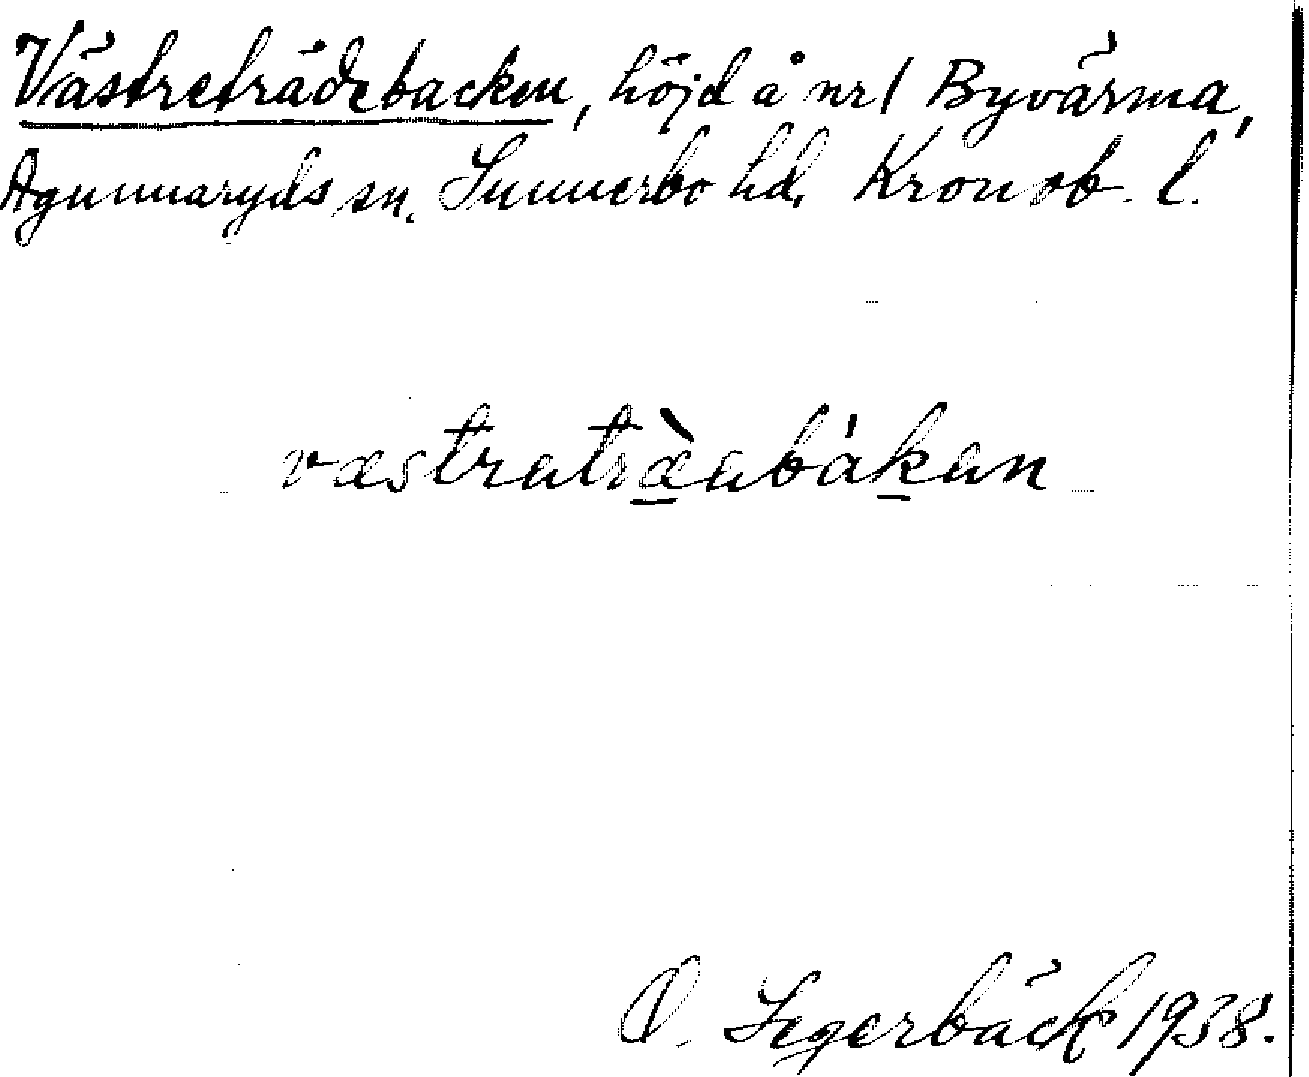 Västreträdebacken, höjd å nr 1 Byvärma,
Agunnaryds sn. Sunnerbo hd. Kronob. l.
væstratræ̀abákan
O. Segerbäck 1938.